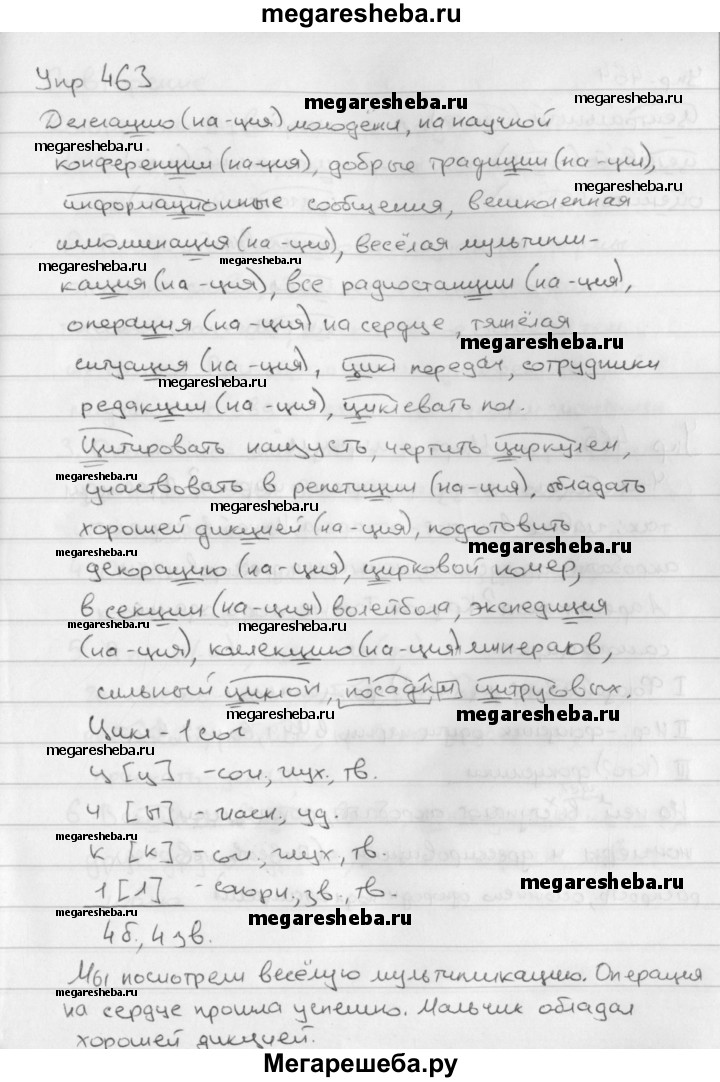 megaresheba.ru
Упр 463
megaresheba.ru
megaresheba.ru
Делегацию (на -ция) молодёжи, на научной
megaresheba.ru
конференции (на-ция), добрые традиции (на -ция),
megaresheba.ru
информационные сообщения, великолепная
иллюминация (на -ция), весёлая мультипли-
megaresheba.ru
megaresheba.ru
кация (на -ция), все радиостанции (на -ция),
операция (на -ция) на сердце, тяжёлая
megaresheba.ru
ситуация (на -ция), цикл передач, сотрудники
megaresheba.ru
редакции (на -ция), циклевать пол.
Цитировать наизусть, чертить циркулем,
megaresheba.ru
участвовать в репетиции (на -ция), обладать
megaresheba.ru
хорошей дикцией (на -ция), подготовить
megaresheba.ru
megaresheba.ru
декорацию (на -ция), цирковой номер,
megaresheba.ru
в секции (на -ция) волейбола, экспедиция
megaresheba.ru
megaresheba.ru
(на -ция), коллекцию (на -ция) минералов,
сильный циклон, посадки цитрусовых.
megaresheba.ru
megaresheba.ru
Цикл - 1 слог
megaresheba.ru
ц [ц] - согл., глух., тв.
[ы] - гласн., уд.
megaresheba.ru
к [к] - согл., глух., тв.
л [л] - сонорн., зв., тв.
megaresheba.ru
megaresheba.ru
megaresheba.ru
4 б., 4 зв.
Мы посмотрели весёлую мультипликацию. Операция
megaresheba.ru
на сердце прошла успешно. Мальчик обладал
хорошей дикцией.
Мегарешеба.ру